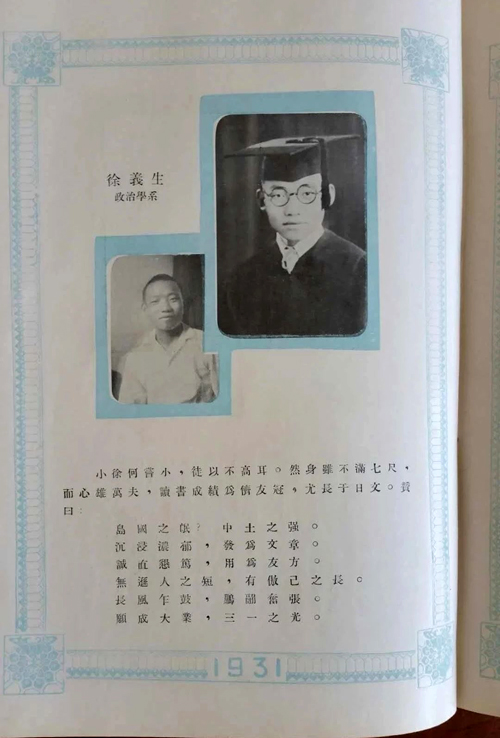 徐義生
政治學系
小徐何嘗小，徒以不高耳。然身雖不滿七尺，
而心雄萬夫，讀書成績爲儕友冠，尤長于日文。贊
曰：
島國之氓？中土之强。
沉浸濃郁，發爲文章。
誠直懇篤，用爲友方。
無逞人之短，有傲己之長。
長風乍鼓，鵬翮奮張。
願成大業，三一之光。
1931